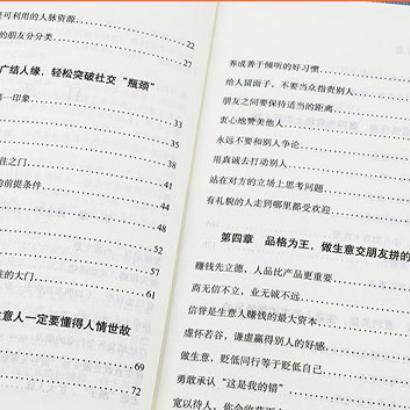 是可利用的人脉资源 22
的朋友分分类 27
广结人缘，轻松突破社交“瓶颈”
一印象 33
35
往之门 38
41
的前提条件 44
48
52
57
往的大门 61
意人一定要懂得人情世故
69
72
养成善于倾听的好习惯
给人留面子，不要当众指责别人
朋友之间要保持适当的距离
衷心地赞美他人
永远不要和别人争论
用真诚去打动别人
站在对方的立场上思考问题
有礼貌的人走到哪里都受欢迎
第四章 品格为王，做生意交朋友拼的
赚钱先立德，人品比产品更重要
商无信不立，业无诚不远
信誉是生意人赚钱的最大资本
虚怀若谷，谦虚赢得别人的好感
做生意，贬低同行等于贬低自己
勇敢承认“这是我的错”
宽以待人，你会收获